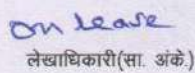 on leave
लेखाधिकारी(सा. अंके.)